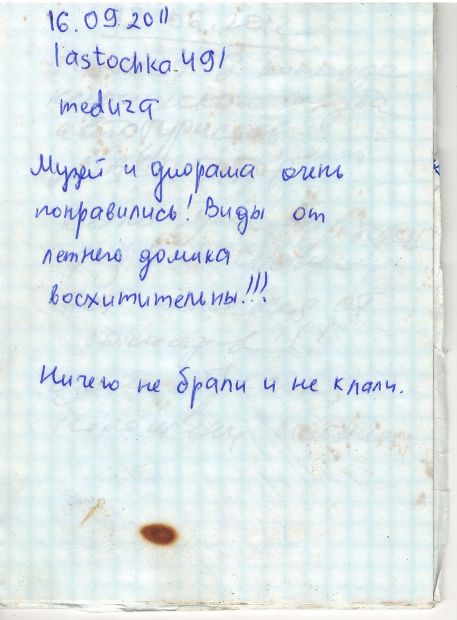 16.09.2011
lastochka.491
meduza
Музей и диорама очень
понравились! Виды от
летнего домика
восхитительны!!!
Ничего не брали и не клали.